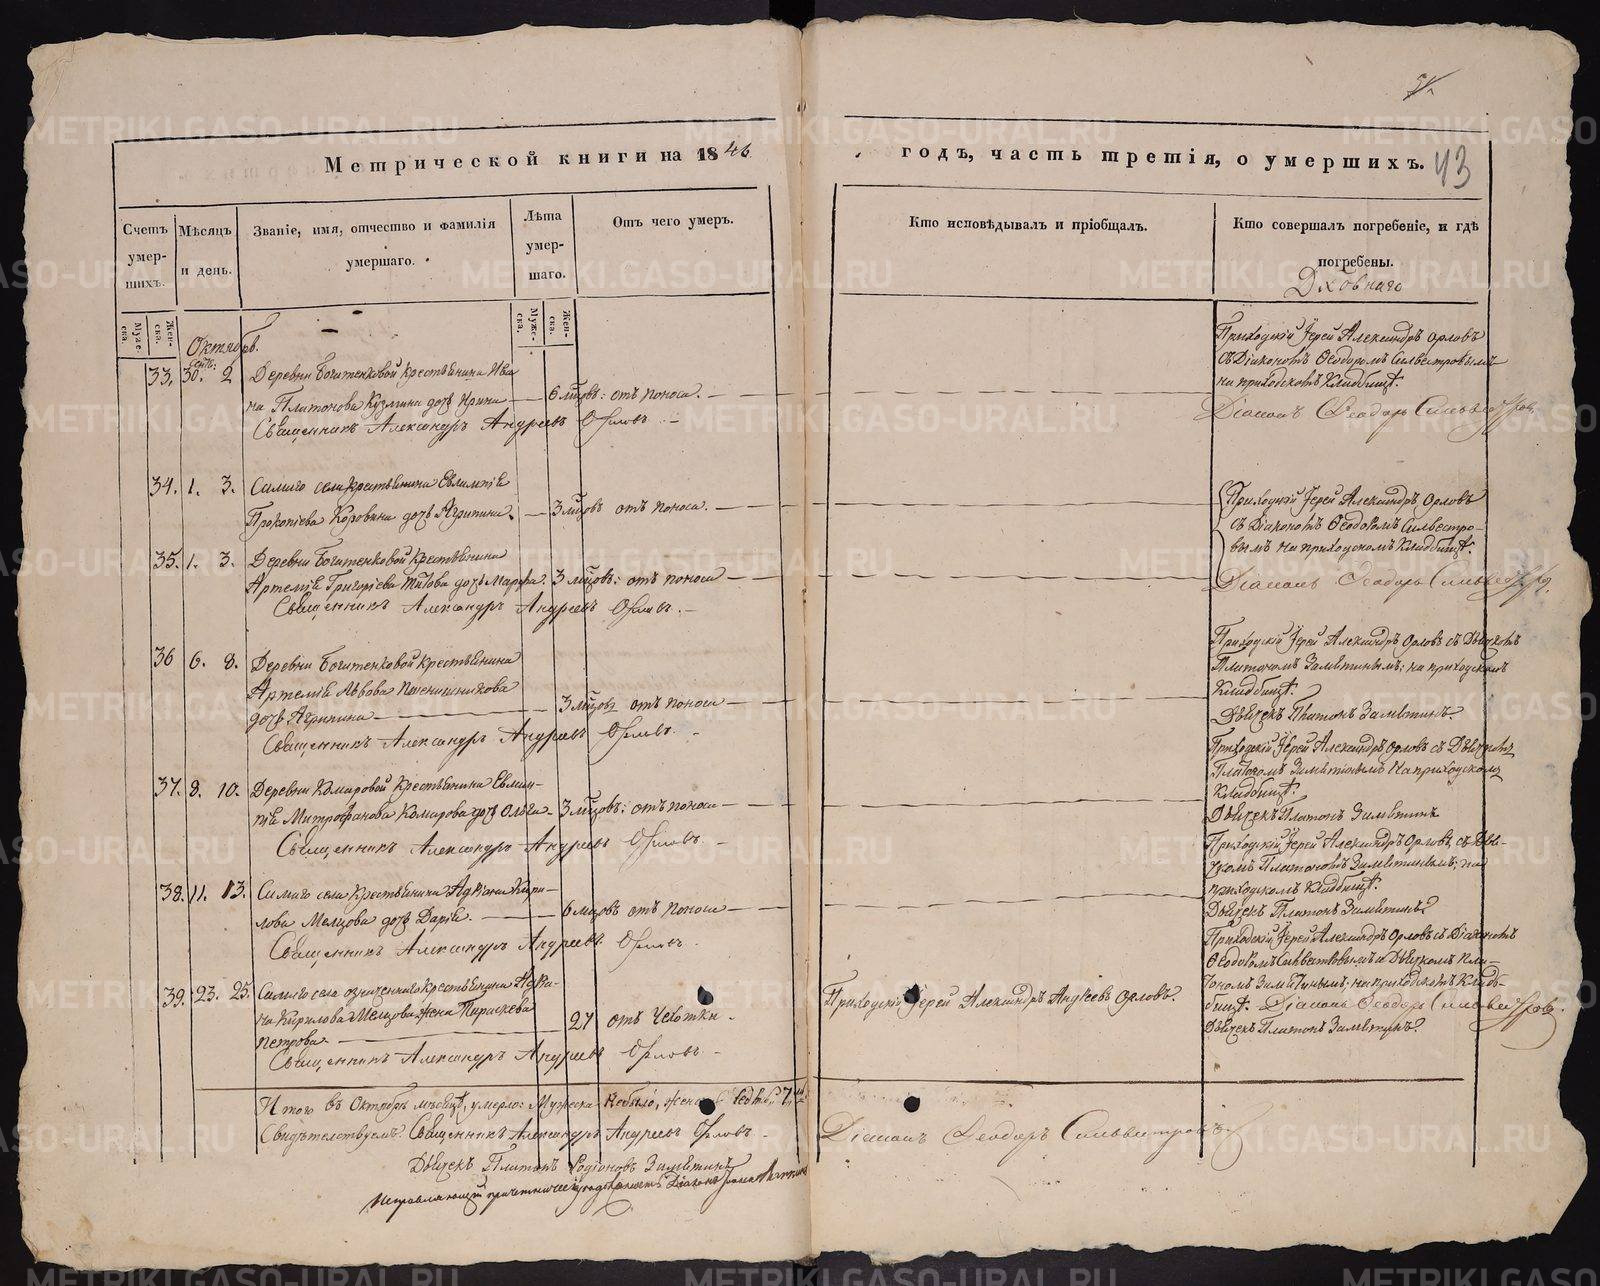 Метрической книги на 1846
годъ, часть третія, о умершихъ. 43
Счетъ умер-шихъ.
Мѣсяцъ и день.
Званіе, имя, отчество и фамилія умершаго.
Лѣта умер-шаго.
Отъ чего умеръ.
Кто исповѣдывалъ и пріобщалъ.
Кто совершалъ погребеніе, и гдѣ погребены.
Муже-ска.
Жен-ска.
Муже-ска.
Жен-ска.
Октябрь.
33. 30. 2 Деревни Богатенковой крестьянина Ива-
на Платонова Кузмина дочь Ирина 6 мцовъ: отъ поноса.
Священникъ Александръ Андреевъ Орловъ
Приходскій Іерей Александръ Орловъ
съ Діакономъ Ѳеодоромъ Сильвестровымъ
на приходскомъ кладбищѣ.
Діаконъ Ѳеодоръ Сильвестровъ
34. 1. 3. Самаго села крестьянина Евлампія
Прокопіева Коровина дочь Агрипина. 3 мцовъ отъ поноса.
Приходскій Іерей Александръ Орловъ
съ Діакономъ Ѳеодоромъ Сильвестро-
вымъ на приходскомъ кладбищѣ.
35. 1. 3. Деревни Богатенковой крестьянина
Артемія Григоріева Титова дочь Марфа. 3 мцовъ: отъ поноса
Священникъ Александръ Андреевъ Орловъ.
Діаконъ Ѳеодоръ Сильвестровъ.
36 6. 8. Деревни Богатенковой крестьянина
Артемія Львова Пшенишникова
дочь Агрипина 3 мцовъ отъ поноса
Священникъ Александръ Андреевъ Орловъ.
Приходскій Іерей Александръ Орловъ съ Дьячкомъ
Платономъ Замятинымъ: на приходскомъ
кладбищѣ.
Дьячекъ Платонъ Замятинъ.
37. 8. 10. Деревни Комаровой крестьянина Евлам-
пія Митрофанова Комарова дочь Ольга 3 мцовъ: отъ поноса
Священникъ Александръ Андреевъ Орловъ.
Приходскій Іерей Александръ Орловъ съ Дьячкомъ
Платономъ Замятинымъ на приходскомъ
кладбищѣ.
Дьячекъ Платонъ Замятинъ
38. 11. 13. Самаго села крестьянина Адріана Кири-
лова Мелцова дочь Дарія. 6 мцовъ отъ поноса
Священникъ Александръ Андреевъ Орловъ
Приходскій Іерей Александръ Орловъ, съ Дья-
чкомъ Платономъ Замятинымъ, на
приходскомъ кладбищѣ.
Дьячекъ Платонъ Замятинъ
39. 23. 25. Самаго села означеннаго крестьянина Адріа-
на Кирилова Мелцова жена Параскева
Петрова 27 отъ чехотки.
Священникъ Александръ Андреевъ Орловъ
Приходскій Іерей Александръ Андреевъ Орловъ.
Приходскій Іерей Александръ Орловъ съ Діакономъ
Ѳеодоромъ Сильвестровымъ и Дьячкомъ Пла-
тономъ Замятинымъ; на приходскомъ кладб-
бищѣ. Діаконъ Ѳеодоръ Сильвестровъ.
Дьячекъ Платонъ Замятинъ
Итого въ Октябрѣ мѣсяцѣ, умерло: Мужеска небыло, женска седмь. 7
Свидѣтельствуемъ: Священникъ Александръ Андреевъ Орловъ.
Діаконъ Ѳеодоръ Сильвестровъ
Дьячекъ Платонъ Родіоновъ Замятинъ
METRIKI.GASO-URAL.RU